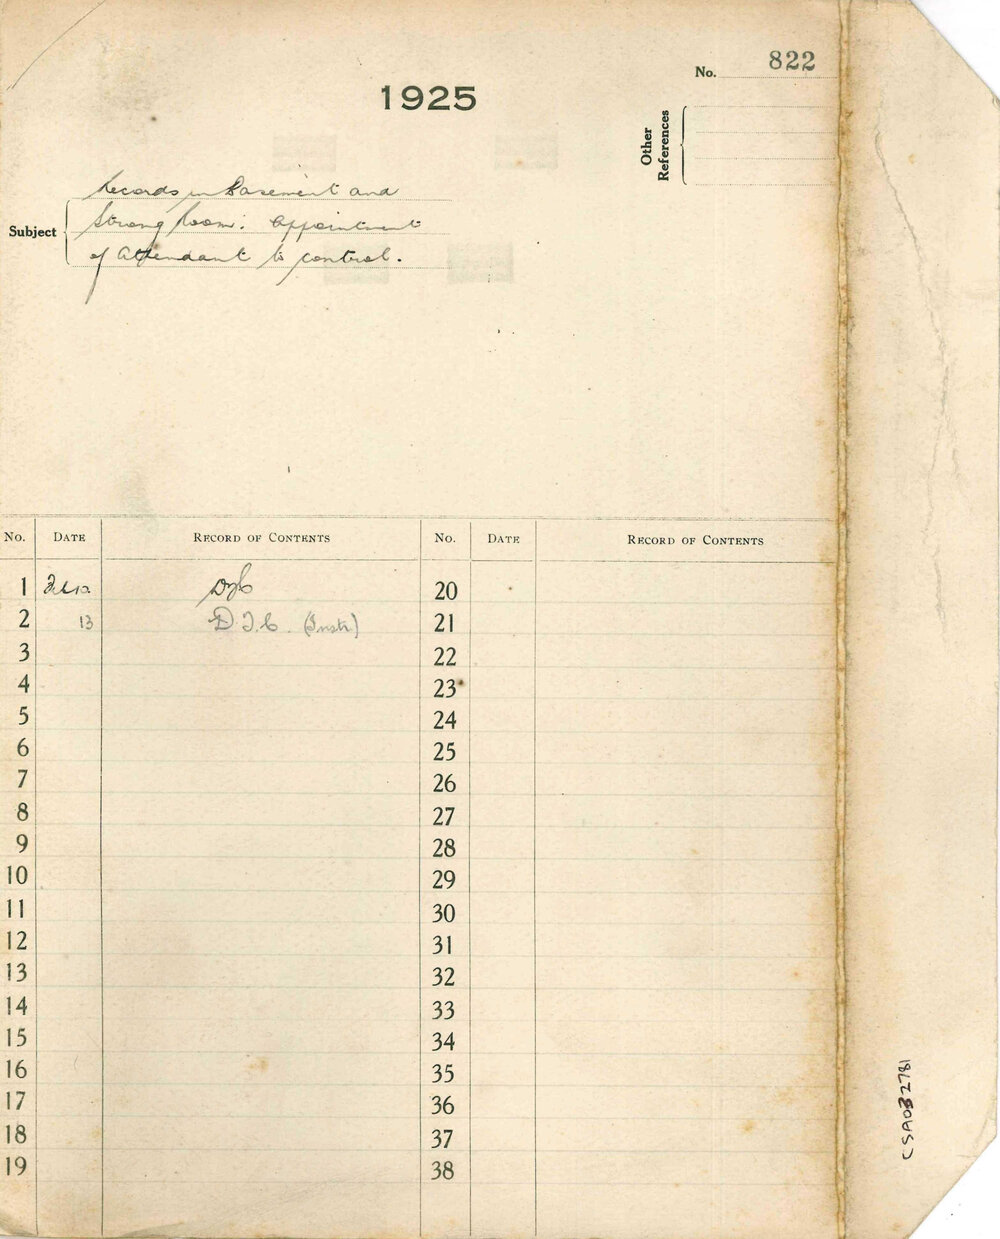 No. 822
1925
Other
References
Records in Basement and
Subject
Strong Room: Appointment
of Attendant to control.
No. DATE RECORD OF CONTENTS No. DATE RECORD OF CONTENTS
1 20
2 13 D.T.C. (Instr.) 21
3 22
4 23
5 24
6 25
7 26
8 27
9 28
10 29
11 30
12 31
13 32
14 33
15 34
16 35
17 36
18 37
19 38